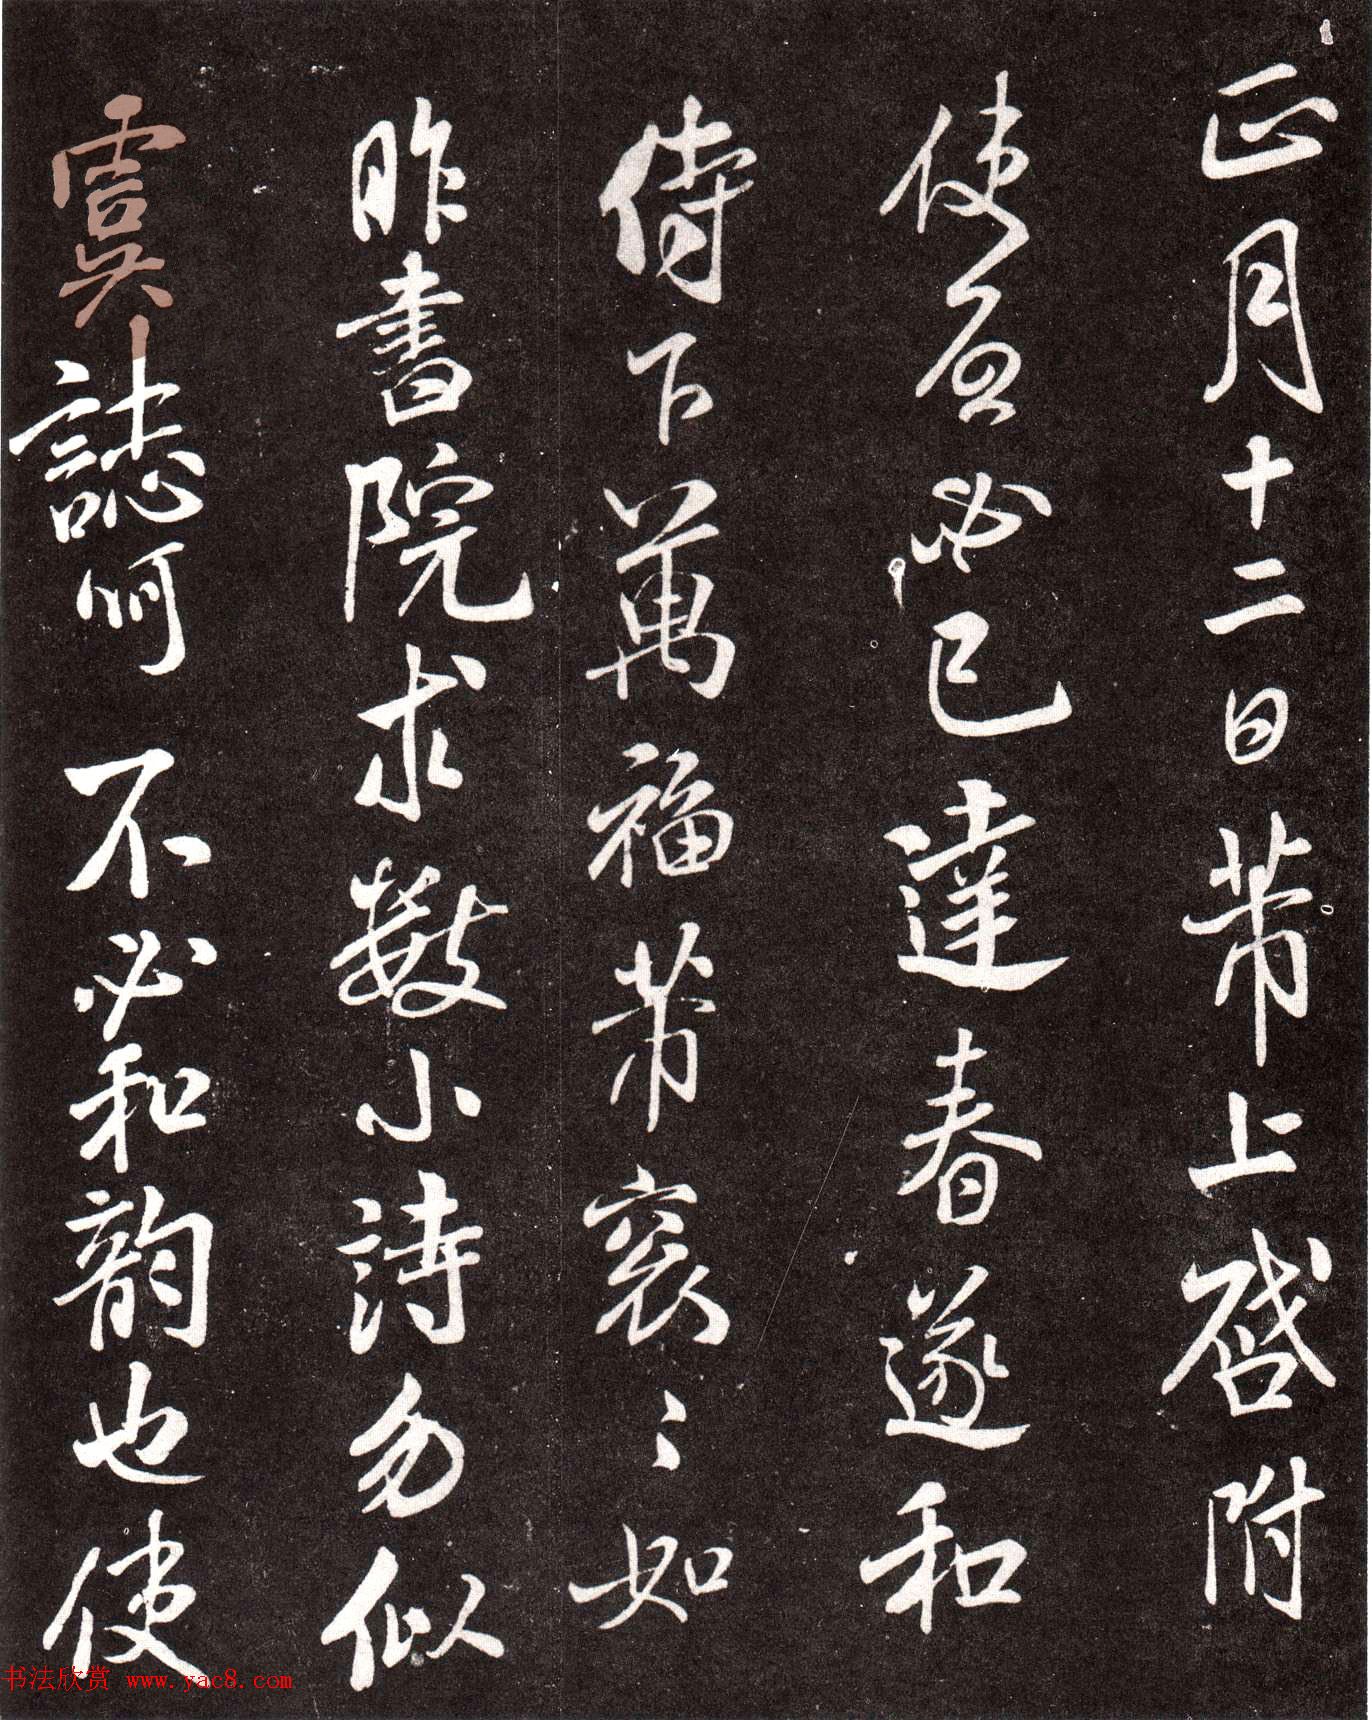 正月十二日芾上啓附
使启必已達春遂和
侍下萬福芾衮〻如
昨書院求數小詩勿似
虞誌呵不必和韵也使
书法欣赏 www.yac8.com